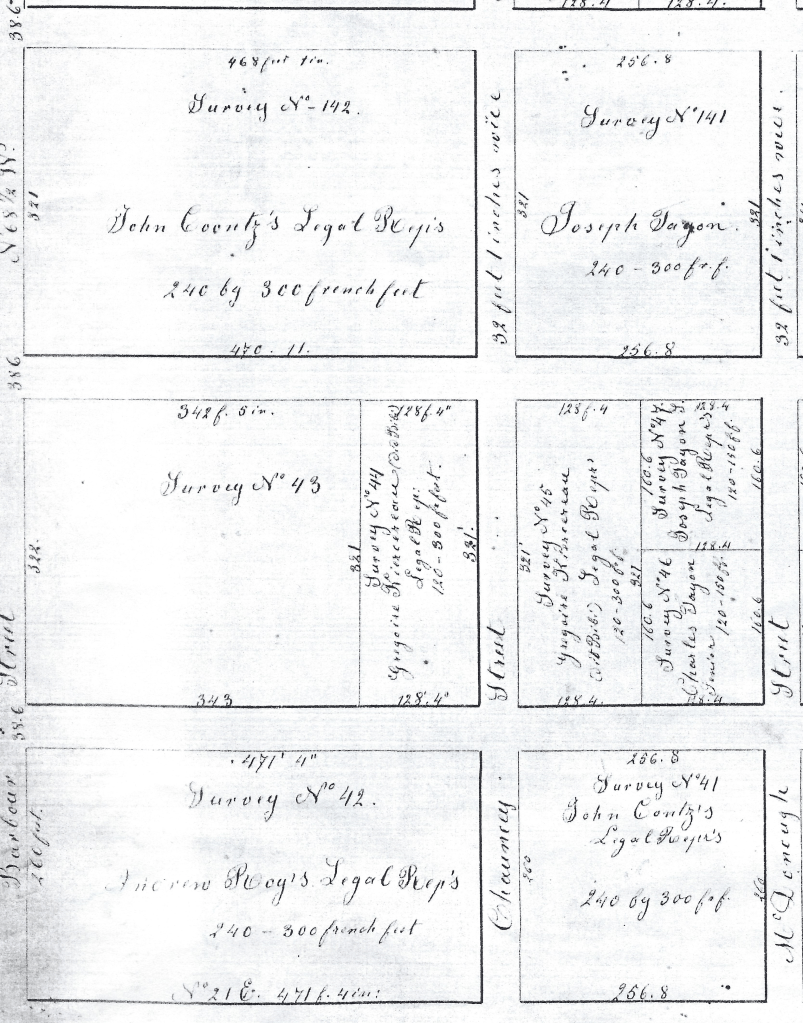 38.6
128.4
128.4.
468 feet 1 in.
Survey No- 142.
321
John Coontz's Legal Rep's
240 by 300 french feet
470. 11.
N 68 1/2 W.
386
32 feet 1 inches wide
256.8
Survey No 141
321
321
Joseph Tayon.
240 - 300 fr. f.
256.8
32 feet 1 inches wide.
342 f. 5 in.
Survey No 43
322.
321
343
128 f. 4"
Survey No 44
Gregoire Kiercereau (dit Bibi)
Legal Rep:
120 - 300 f. feet.
321.
128.4"
Street
128 f. 4
321'
Survey No 45
Gregoire Kiercereau
(dit Bibi) Legal Rep's
120 - 300 f.
321
128.4.
128.4
160.6
Survey No 47.
Joseph Tayon J.
Legal Rep's
120 - 150 f f.
160.6
128.4
160.6
Survey No 46
Charles Tayon
Senior 120 - 150 f.
160.6
128.4
Street
Street
38.6
Barbour
260 feet.
471' 4"
Survey No 42.
Andrew Roy's Legal Rep's
240 - 300 french feet
No 21 E. 471 f. 4 in:
Chauncey.
256.8
Survey No 41
John Contz's
Legal Rep's
260
260
240 by 300 f. f.
256.8
McDonough